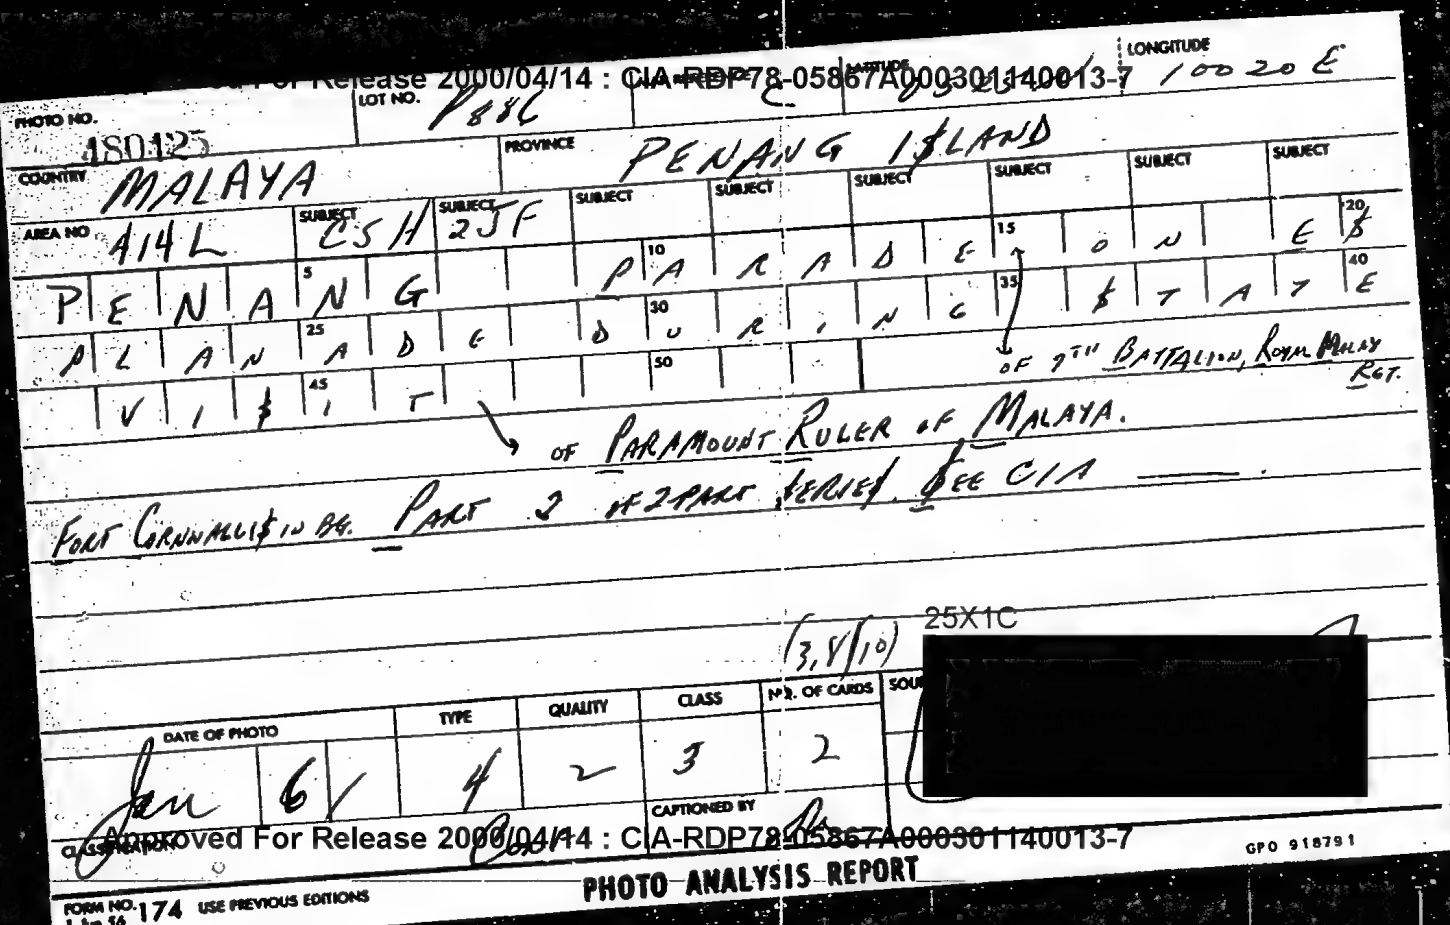 LONGITUDE
Release 2000/04/14 : CIA-RDP78-05867A000301140013-7
10020 E
PHOTO NO. LOT NO. P886
180125
COUNTRY MALAYA PROVINCE PENANG I$LAND
AREA NO A14L SUBJECT CSH SUBJECT 2JF SUBJECT SUBJECT SUBJECT SUBJECT SUBJECT SUBJECT
PENANG PARADE ON E$
PLANADE DURING $TATE
VI$IT
OF 7TH BATTALION, ROYAL MALAY RGT.
OF PARAMOUNT RULER OF MALAYA.
FORT CORNWALLI$ IN BG. PART 2 OF 2-PART $ERIE$. $EE CIA ____.
25X1C
DATE OF PHOTO TYPE QUALITY CLASS NO. OF CARDS
Jan 61 4 2 3 2
CAPTIONED BY
Approved For Release 2000/04/14 : CIA-RDP78-05867A000301140013-7
CLASSIFICATION
GPO 918791
FORM NO. 174 USE PREVIOUS EDITIONS PHOTO ANALYSIS REPORT